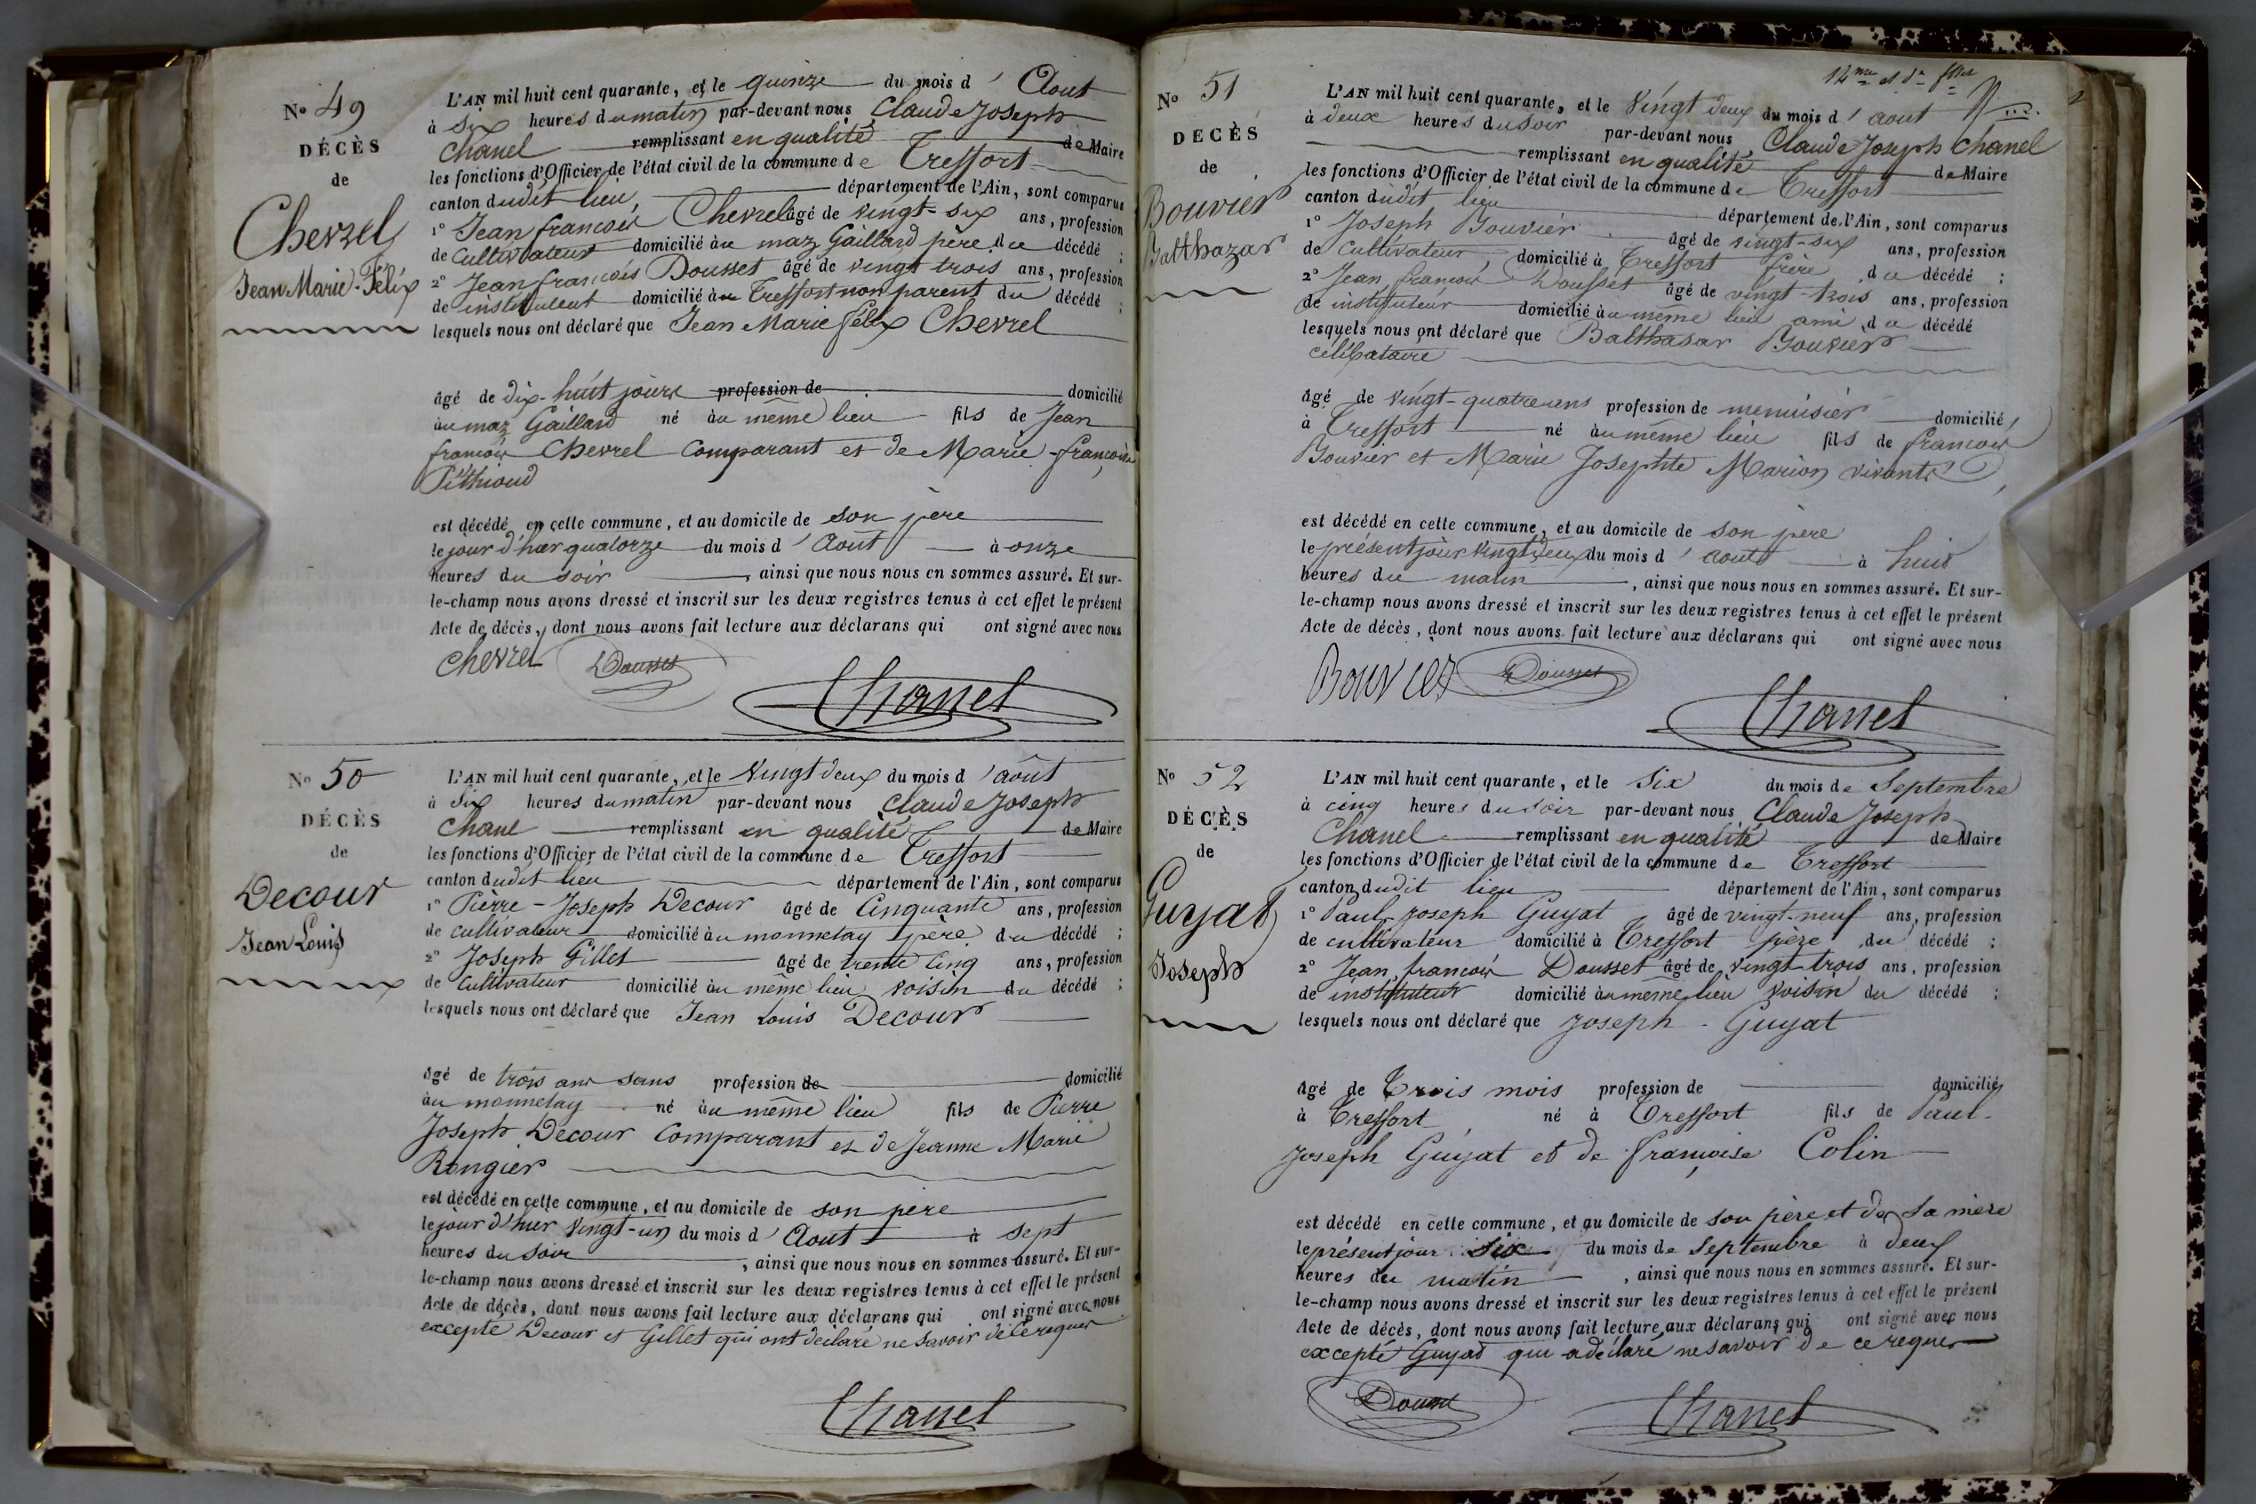 No 49
DÉCÈS
de
Chevrel
Jean Marie-Félix
L'AN mil huit cent quarante, et le quinze du mois d'Aout
à six heures du matin par-devant nous Claude Joseph
Chanel remplissant en qualité de Maire
les fonctions d'Officier de l'état civil de la commune de Treffort
canton dudit lieu, département de l'Ain, sont comparus
1° Jean françois Chevrel âgé de vingt-six ans, profession
de cultivateur domicilié au maz Gaillard père du décédé ;
2° Jean françois Dousset âgé de vingt trois ans, profession
de instituteur domicilié à Treffort non parent du décédé ;
lesquels nous ont déclaré que Jean Marie félix Chevrel
âgé de dix-huit jours profession de domicilié
au maz Gaillard né au même lieu fils de Jean
françois Chevrel comparant et de Marie-françoise
Pithioud
est décédé en cette commune, et au domicile de son père
le jour d'hier quatorze du mois d'Aout à onze
heures du soir, ainsi que nous nous en sommes assuré. Et sur-
le-champ nous avons dressé et inscrit sur les deux registres tenus à cet effet le présent
Acte de décès, dont nous avons fait lecture aux déclarans qui ont signé avec nous
Chevrel Dousset
Chanel
No 50
DÉCÈS
de
Decour
Jean Louis
L'AN mil huit cent quarante, et le vingt deux du mois d'août
à six heures du matin par-devant nous Claude Joseph
Chanel remplissant en qualité de Maire
les fonctions d'Officier de l'état civil de la commune de Treffort
canton dudit lieu département de l'Ain, sont comparus
1° Pierre-Joseph Decour âgé de Cinquante ans, profession
de cultivateur domicilié au monnetay père du décédé ;
2° Joseph Gillet âgé de trente cinq ans, profession
de cultivateur domicilié au même lieu voisin du décédé ;
lesquels nous ont déclaré que Jean Louis Decour
âgé de trois ans sans profession de domicilié
au monnetay né au même lieu fils de Pierre
Joseph Decour comparant et de Jeanne Marie
Rongier
est décédé en cette commune, et au domicile de son père
le jour d'hier vingt-un du mois d'Aout à sept
heures du soir, ainsi que nous nous en sommes assuré. Et sur-
le-champ nous avons dressé et inscrit sur les deux registres tenus à cet effet le présent
Acte de décès, dont nous avons fait lecture aux déclarans qui ont signé avec nous
excepté Decour et Gillet qui ont déclaré ne savoir de ce requer
Chanel
12me et dr fllet
No 51
DÉCÈS
de
Bouvier
Balthazar
L'AN mil huit cent quarante, et le vingt deux du mois d'aout
à deux heures du soir par-devant nous Claude Joseph Chanel
remplissant en qualité de Maire
les fonctions d'Officier de l'état civil de la commune de Treffort
canton dudit lieu département de l'Ain, sont comparus
1° Joseph Bouvier âgé de vingt-six ans, profession
de cultivateur, domicilié à Treffort frère du décédé ;
2° Jean françois Dousset âgé de vingt-trois ans, profession
de instituteur domicilié au même lieu ami du décédé
lesquels nous ont déclaré que Balthasar Bouvier
célibataire
âgé de vingt-quatre ans profession de menuisier domicilié
à Treffort né au même lieu fils de françois
Bouvier et Marie Josephte Marion vivants
est décédé en cette commune, et au domicile de son père
le présent jour vingt deux du mois d'aout à huit
heures du matin, ainsi que nous nous en sommes assuré. Et sur-
le-champ nous avons dressé et inscrit sur les deux registres tenus à cet effet le présent
Acte de décès, dont nous avons fait lecture aux déclarans qui ont signé avec nous
Bouvier Dousset
Chanel
No 52
DÉCÈS
de
Guyat
Joseph
L'AN mil huit cent quarante, et le Six du mois de Septembre
à cinq heures du soir par-devant nous Claude Joseph
Chanel remplissant en qualité de Maire
les fonctions d'Officier de l'état civil de la commune de Treffort
canton dudit lieu département de l'Ain, sont comparus
1° Paul Joseph Guyat âgé de vingt-neuf ans, profession
de cultivateur domicilié à Treffort père du décédé ;
2° Jean françois Dousset âgé de vingt-trois ans, profession
de instituteur domicilié au même lieu voisin du décédé ;
lesquels nous ont déclaré que Joseph-Guyat
âgé de Trois mois profession de domicilié
à Treffort né à Treffort fils de Paul-
Joseph Guyat et de françoise Colin
est décédé en cette commune, et au domicile de son père et de sa mère
le présent jour six du mois de Septembre à deux
heures du matin, ainsi que nous nous en sommes assuré. Et sur-
le-champ nous avons dressé et inscrit sur les deux registres tenus à cet effet le présent
Acte de décès, dont nous avons fait lecture aux déclarans qui ont signé avec nous
excepté Guyat qui a déclaré ne savoir de ce requer
Dousset Chanel